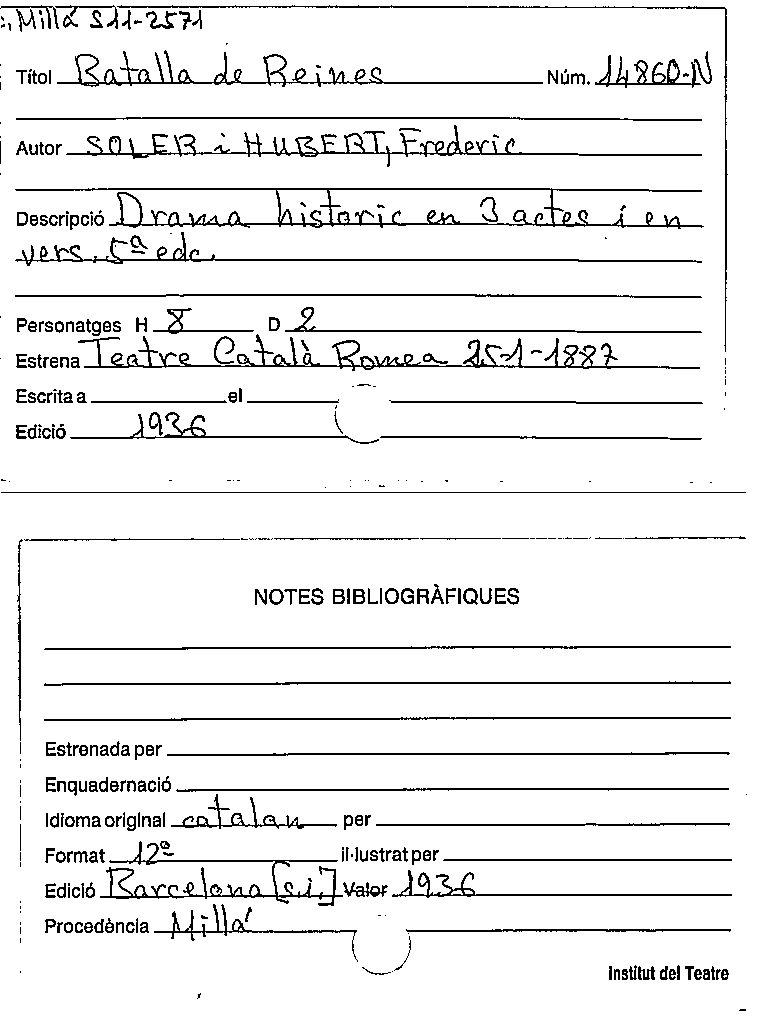 Millá S11-2571
Títol Batalla de Reines Núm. 14860-N
Autor SOLER i HUBERT, Frederic
Descripció Drama historic en 3 actes i en
vers. 5ª edc.
Personatges H 8 D 2
Estrena Teatre Català Romea 25-1-1887
Escrita a el
Edició 1936
NOTES BIBLIOGRÀFIQUES
Estrenada per
Enquadernació
Idioma original catalan per
Format 12º il·lustrat per
Edició Barcelona [s.i.] Valor 1936
Procedència Millá
Institut del Teatre